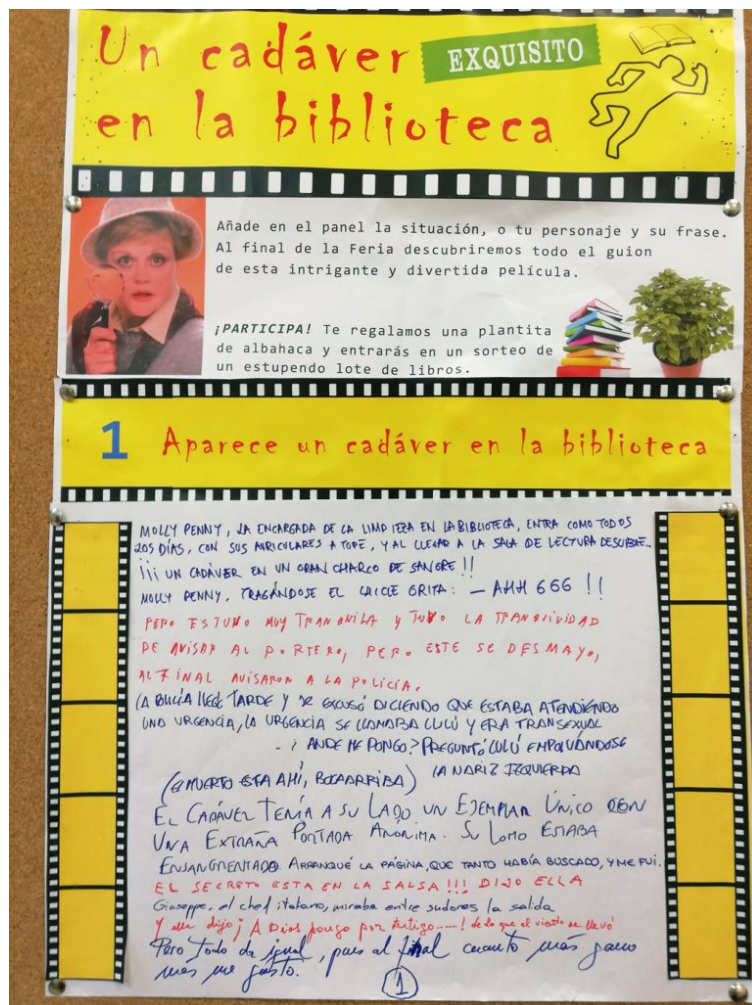 Un cadáver EXQUISITO
en la biblioteca
Añade en el panel la situación, o tu personaje y su frase.
Al final de la Feria descubriremos todo el guion
de esta intrigante y divertida película.
¡PARTICIPA! Te regalamos una plantita
de albahaca y entrarás en un sorteo de
un estupendo lote de libros.
1 Aparece un cadáver en la biblioteca
MOLLY PENNY, LA ENCARGADA DE LA LIMPIEZA EN LA BIBLIOTECA, ENTRA COMO TODOS
LOS DÍAS, CON SUS AURICULARES A TOPE, Y AL LLEGAR A LA SALA DE LECTURA DESCUBRE...
¡¡¡ UN CADÁVER EN UN GRAN CHARCO DE SANGRE !!
MOLLY PENNY, TRAGÁNDOSE EL CHICLE GRITA: - AHH 666 !!
PERO ESTUVO MUY TRANQUILA Y TUVO LA TRANQUILIDAD
DE AVISAR AL PORTERO, PERO ESTE SE DESMAYO,
AL FINAL AVISARON A LA POLICÍA.
LA POLICÍA LLEGÓ TARDE Y SE EXCUSÓ DICIENDO QUE ESTABA ATENDIENDO
UNA URGENCIA, LA URGENCIA SE LLAMABA LULÚ Y ERA TRANSEXUAL
- ¿ANDE ME PONGO? PREGUNTÓ LULÚ EMPOLVÁNDOSE
LA NARIZ IZQUIERDA
(EL MUERTO ESTA AHÍ, BOCAARRIBA)
EL CADÁVER TENÍA A SU LADO UN EJEMPLAR ÚNICO CON
UNA EXTRAÑA PORTADA ANÓNIMA. SU LOMO ESTABA
ENSANGRENTADO. ARRANQUÉ LA PÁGINA, QUE TANTO HABÍA BUSCADO, Y ME FUI.
EL SECRETO ESTA EN LA SALSA!!! DIJO ELLA
Giuseppe, el chef italiano, miraba entre sudores la salida
Y ella dijo ¡A Dios pongo por testigo.....! de lo que el viento se llevó
Pero todo da igual, pues al final cuanto más gano
más me gasto.
1